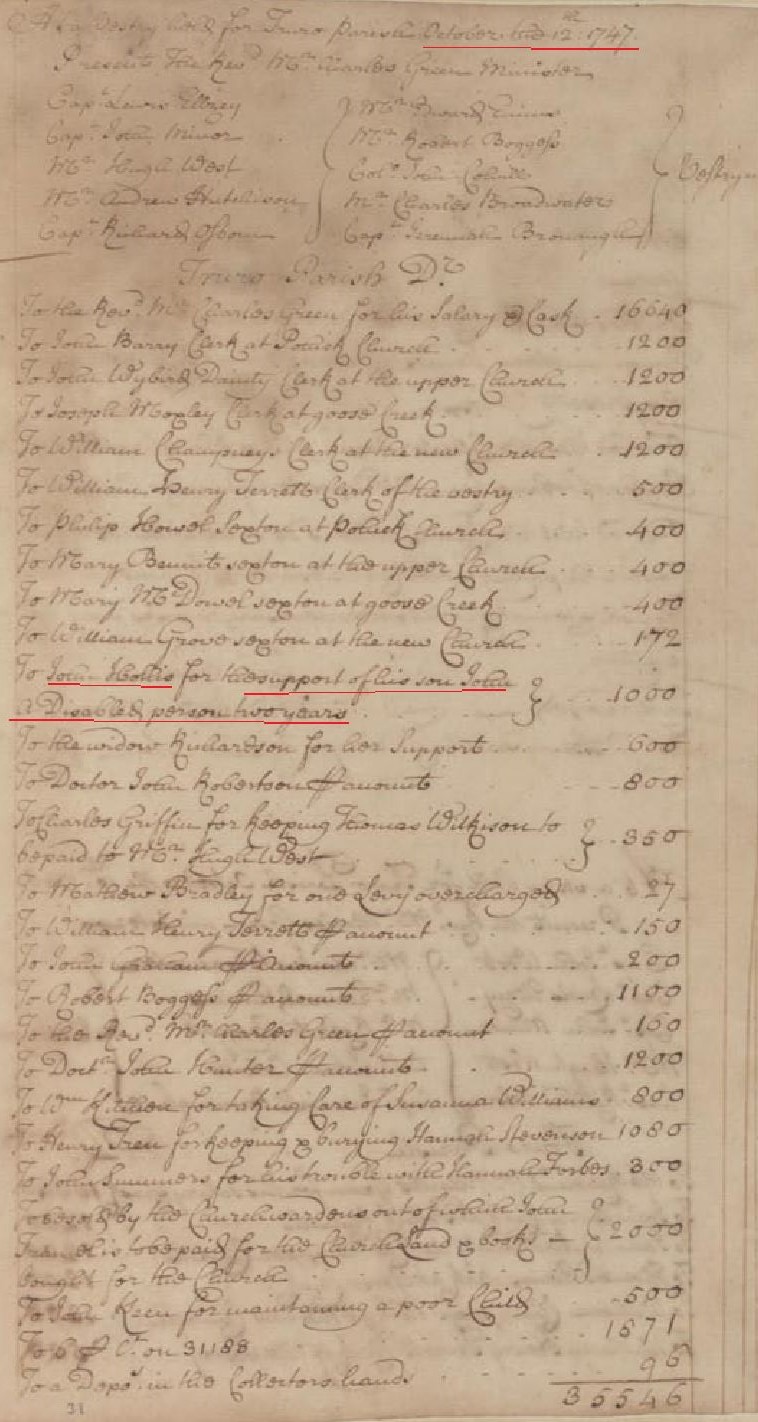 At a Vestry held for Truro Parish October the 12th: 1747.
Present The Revd. Mr. Charles Green Minister
Capt. Lewis Ellzey
Capt. John Minor
Mr. Hugh West
Mr. Andrew Hutchison
Capt. Richard Osborn
Mr. Edward Emms
Mr. Robert Boggess
Colo. John Colvill
Mr. Charles Broadwater
Capt. Jeremiah Bronaugh
Vestrym
Truro Parish Dr.
To the Revd. Mr. Charles Green for his Salary & Cask 16640
To John Barry Clerk at Pohick Church 1200
To John Wybird Dainty Clerk at the upper Church 1200
To Joseph Moxley Clerk at goose Creek 1200
To William Champneys Clerk at the new Church 1200
To William Henry Terrett Clerk of the vestry 500
To Philip Howel Sexton at Pohick Church 400
To Mary Bennit sexton at the upper Church 400
To Mary McDowel sexton at goose Creek 400
To William Grove sexton at the new Church 172
To John Hollis for the support of his son John
a Disabled person two years 1000
To the widow Richardson for her Support 600
To Doctor John Robertson ⅌ account 800
To Charles Griffin for keeping Thomas Wilkison to
be paid to Mr. Hugh West 350
To Mathew Bradley for one Levy overcharged 27
To William Henry Terrett ⅌ account 150
To John Graham ⅌ Account 200
To Robert Boggess ⅌ account 1100
To the Revd. Mr. Charles Green ⅌ account 160
To Doctr. John Hunter ⅌ account 1200
To Wm Kitchen for taking Care of Susanna Williams 800
To Henry Tren for keeping & burying Hannah Stevenson 1080
To John Summers for his trouble with Hannah Forbes 300
To be sold by the Churchwardens out of which John
is to be paid for the Church Land & books 2000
bought for the Church
To John Keen for maintaining a poor Child 500
1871
To 6 ⅌ Ct. on 31188
To a Depot. in the Collectors hands 96
35546
31